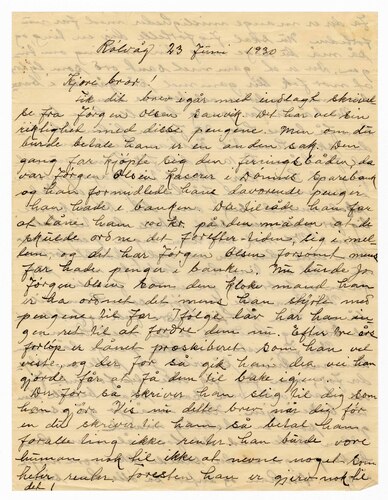 Rølvåg 23 Juni 1930
Kjære bror!
Fik dit brev igår med indlagt skrivel
se fra Jørgen Olsen Sauvik. Det har vel sin
rigtighet med disse pengene. Men om du
burde betale ham er en anden sak. Den
gang far kjøpte sig den færingsbåden, da
var Jørgen Olsen Kaserer i Dønnes Sparebank
og han formidlede hans daværende penger
han hade i banken. Da tilbød han far
at låne ham på den måden at de
skulde ordne det for efter-tiden, sig i mel
lem, og det har Jørgen Olsen forsømt mens
far hade penger i banken. Nu burde jo
Jørgen Olsen som den kloke mand han
er ha ordnet det mens han styrte med
pengene til far. Ifølge lov har han in
gen ret til at fordre dem nu. Efter tre års
forløp er lånet præskiberet som han vel
veiste, og der for så gik han den vei han
gjorde for at få dem til bake igjen.
Der for så skriver han slig til dig som
han gjør. Vis nu dette brev når dig før
en du skriver til ham, så betal ham
for alle ting ikke renter han burde være
human nok til ikke at nevne noget som
heter renter, Foresten han er gjerrig nok til
det!